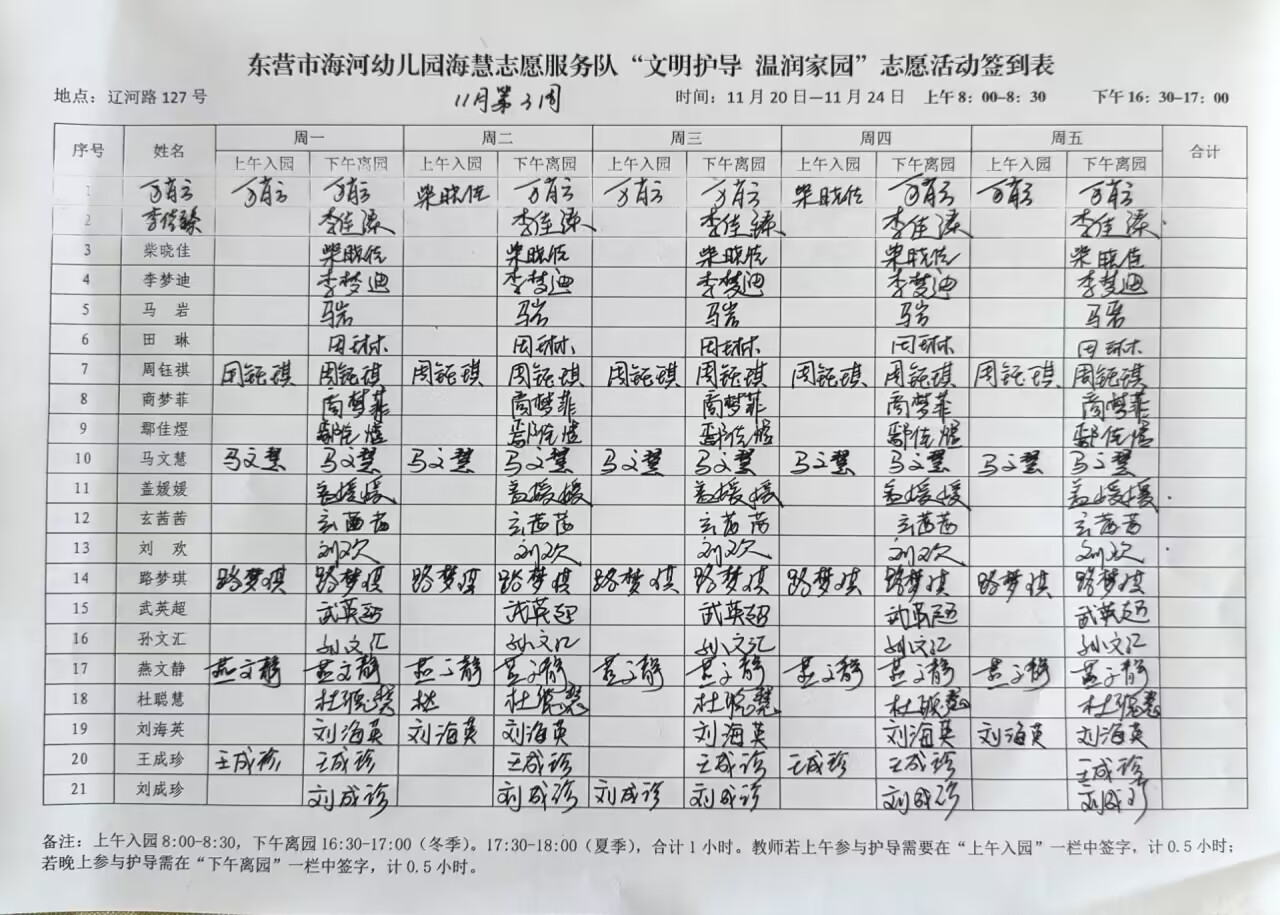 东营市海河幼儿园海慧志愿服务队“文明护导 温润家园”志愿活动签到表
地点：辽河路127号 11月第3周 时间：11月20日—11月24日 上午8：00-8：30 下午16：30-17：00
序号 姓名 周一 周二 周三 周四 周五 合计
上午入园 下午离园 上午入园 下午离园 上午入园 下午离园 上午入园 下午离园 上午入园 下午离园
1 万肖云 万肖云 万肖云 柴晓佳 万肖云 万肖云 万肖云 柴晓佳 万肖云 万肖云 万肖云
2 李佳臻 李佳臻 李佳臻 李佳臻 李佳臻 李佳臻
3 柴晓佳 柴晓佳 柴晓佳 柴晓佳 柴晓佳 柴晓佳
4 李梦迪 李梦迪 李梦迪 李梦迪 李梦迪 李梦迪
5 马 岩 马岩 马岩 马岩 马岩 马岩
6 田 琳 田琳 田琳 田琳 田琳 田琳
7 周钰祺 周钰琪 周钰琪 周钰琪 周钰琪 周钰琪 周钰琪 周钰琪 周钰琪 周钰琪 周钰琪
8 商梦菲 商梦菲 商梦菲 商梦菲 商梦菲 商梦菲
9 鄢佳煜 鄢佳煜 鄢佳煜 鄢佳煜 鄢佳煜 鄢佳煜
10 马文慧 马文慧 马文慧 马文慧 马文慧 马文慧 马文慧 马文慧 马文慧 马文慧 马文慧
11 盖媛媛 盖媛媛 盖媛媛 盖媛媛 盖媛媛 盖媛媛
12 玄茜茜 玄茜茜 玄茜茜 玄茜茜 玄茜茜 玄茜茜
13 刘 欢 刘欢 刘欢 刘欢 刘欢 刘欢
14 路梦琪 路梦琪 路梦琪 路梦琪 路梦琪 路梦琪 路梦琪 路梦琪 路梦琪 路梦琪 路梦琪
15 武英超 武英超 武英超 武英超 武英超 武英超
16 孙文汇 孙文汇 孙文汇 孙文汇 孙文汇 孙文汇
17 燕文静 燕文静 燕文静 燕文静 燕文静 燕文静 燕文静 燕文静 燕文静 燕文静 燕文静
18 杜聪慧 杜聪慧 杜聪慧 杜聪慧 杜聪慧 杜聪慧
19 刘海英 刘海英 刘海英 刘海英 刘海英 刘海英 刘海英 刘海英
20 王成珍 王成珍 王成珍 王成珍 王成珍 王成珍 王成珍 王成珍
21 刘成珍 刘成珍 刘成珍 刘成珍 刘成珍 刘成珍 刘成珍
备注：上午入园8:00-8:30，下午离园16:30-17:00（冬季）。17:30-18:00（夏季），合计1小时。教师若上午参与护导需要在“上午入园”一栏中签字，计0.5小时；
若晚上参与护导需在“下午离园”一栏中签字，计0.5小时。